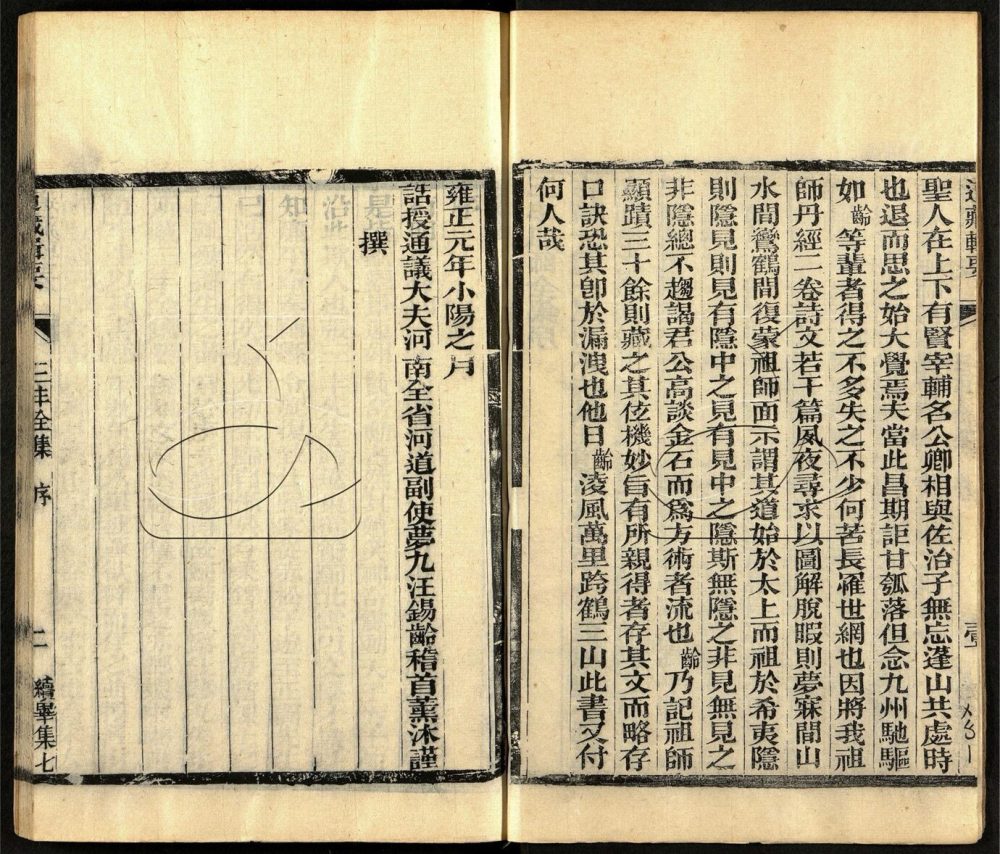 道藏輯要
壹
聖人在上下有賢宰輔名公卿相與佐治子無忘蓬山共處時
也退而思之始大覺焉夫當此昌期詎甘瓠落但念九州馳驅
如齡等輩者得之不多失之不少何苦長羅世網也因將我祖
師丹經二卷詩文若干篇夙夜尋求以圖解脫暇則夢寐間山
水間鸞鶴間復蒙祖師面示謂其道始於太上而祖於希夷隱
則隱見則見有隱中之見有見中之隱斯無隱之非見無見之
非隱總不趨謁君公高談金石而爲方術者流也齡乃記祖師
顯蹟三十餘則藏之其伭機妙旨有所親得者存其文而略存
口訣恐其卽於漏洩也他日齡淩風萬里跨鶴三山此書又付
何人哉
雍正元年小陽之月
誥授通議大夫河南全省河道副使夢九汪錫齡稽首薰沐謹
撰
道藏輯要
三丰全集
序
二
續畢集七